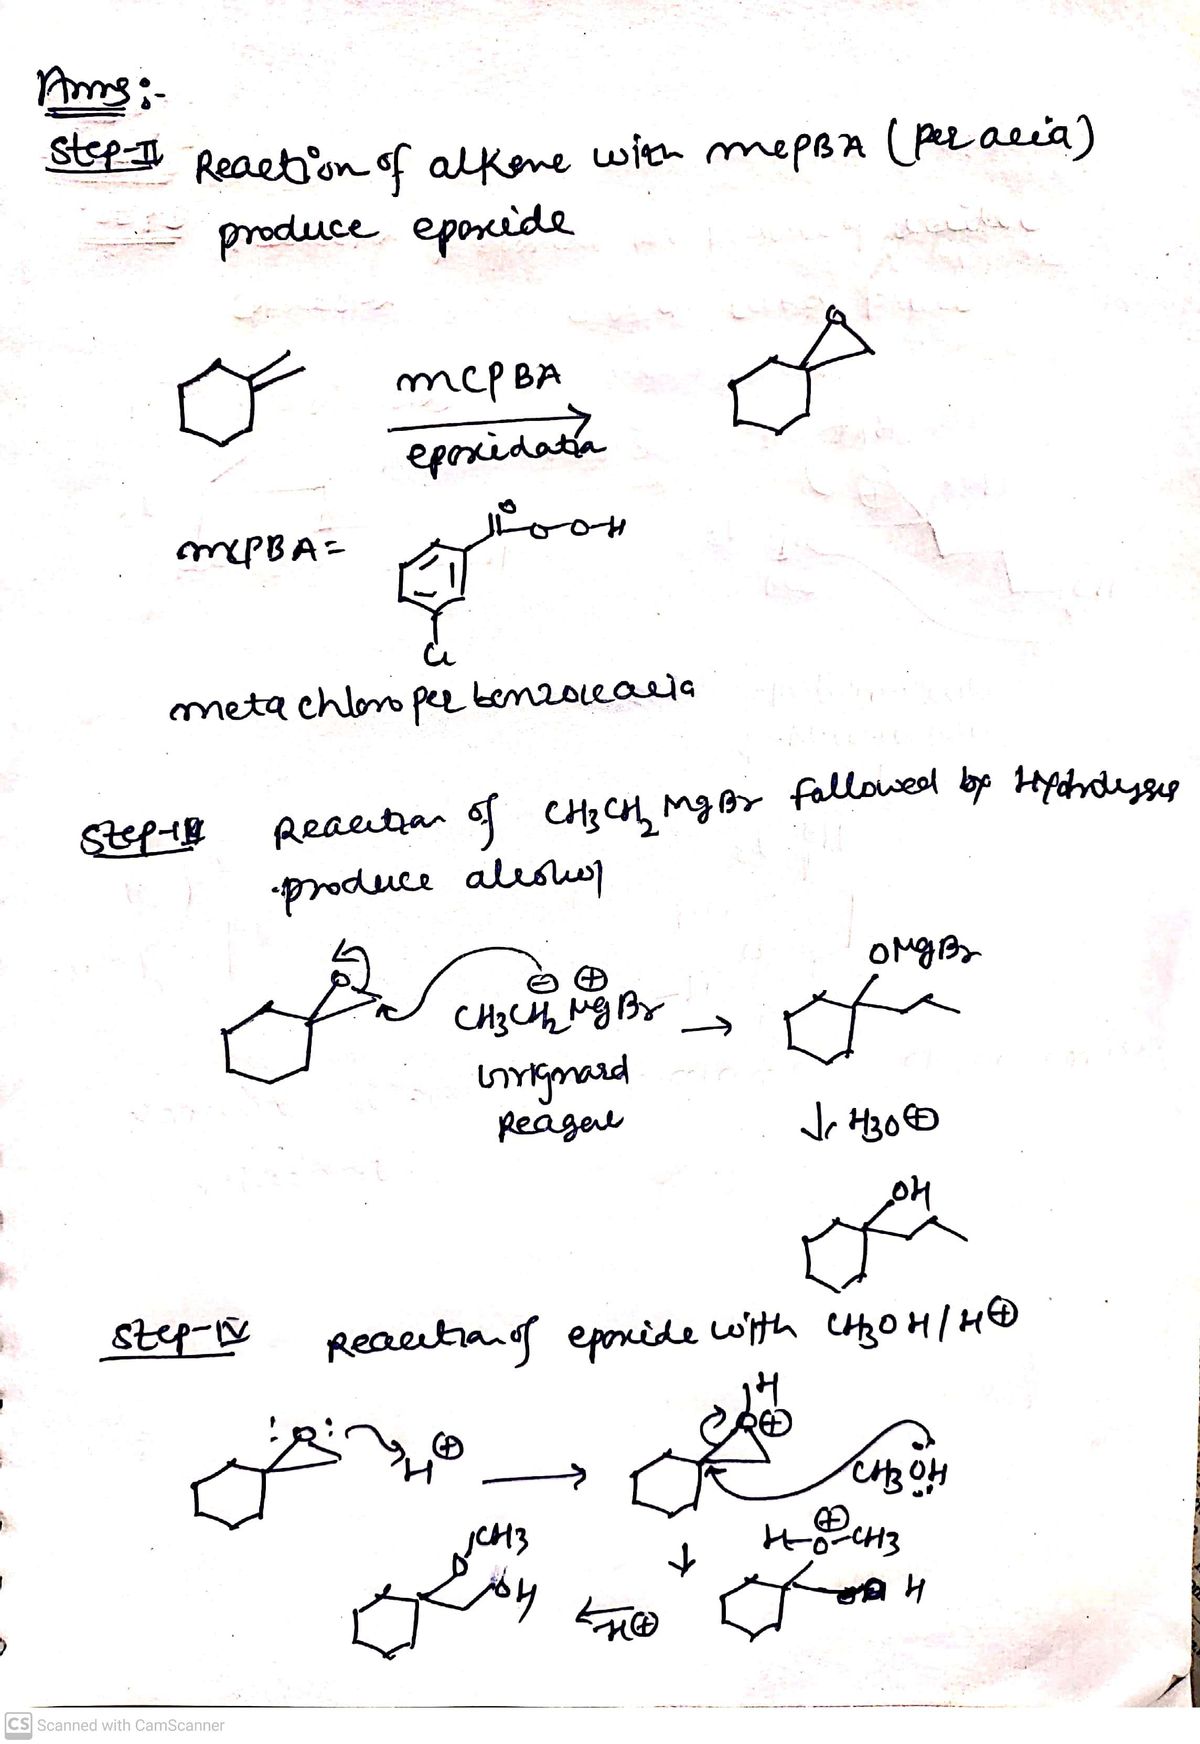 Ans:-
Step-II Reaction of alkene with mcpBA (per acid)
produce epoxide
O
mcpBA
epoxidation
mcpBA =
O
O-O-H
Cl
meta chloro per benzoic acid
Step-III Reaction of CH3CH2MgBr followed by Hydrolysis
produce alcohol
OMgBr
O ⊖ ⊕
CH3CH2MgBr →
Grignard
Reagent
↓ H3O⊕
OH
Step-IV Reaction of epoxide with CH3OH/H⊕
H
:O: H⊕ → O⊕
CH3ÖH
H-O⊕-CH3
OCH3 ↓
OH -H⊕ OH
CS Scanned with CamScanner